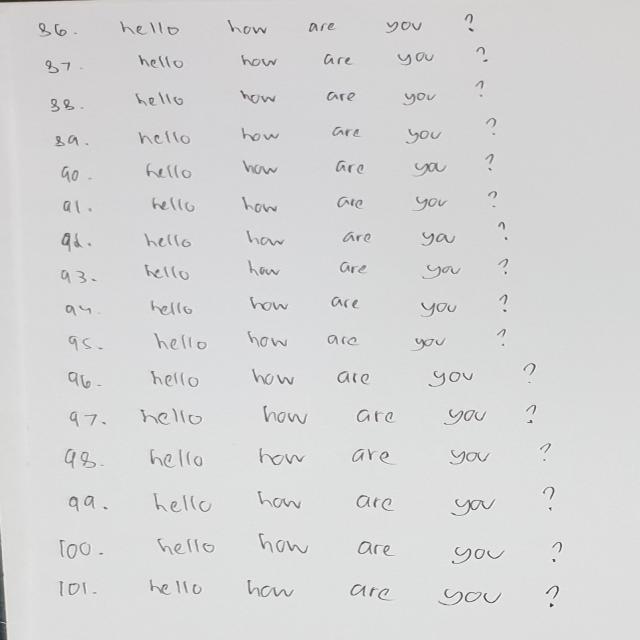 86. hello how are you ?
87. hello how are you ?
88. hello how are you ?
89. hello how are you ?
90. hello how are you ?
91. hello how are you ?
92. hello how are you ?
93. hello how are you ?
94. hello how are you ?
95. hello how are you ?
96. hello how are you ?
97. hello how are you ?
98. hello how are you ?
99. hello how are you ?
100. hello how are you ?
101. hello how are you ?